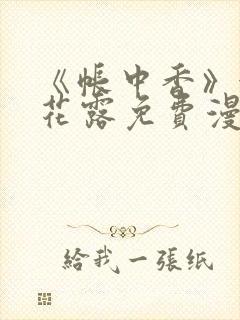 《帳中香》
花露免費漫
給我一張紙